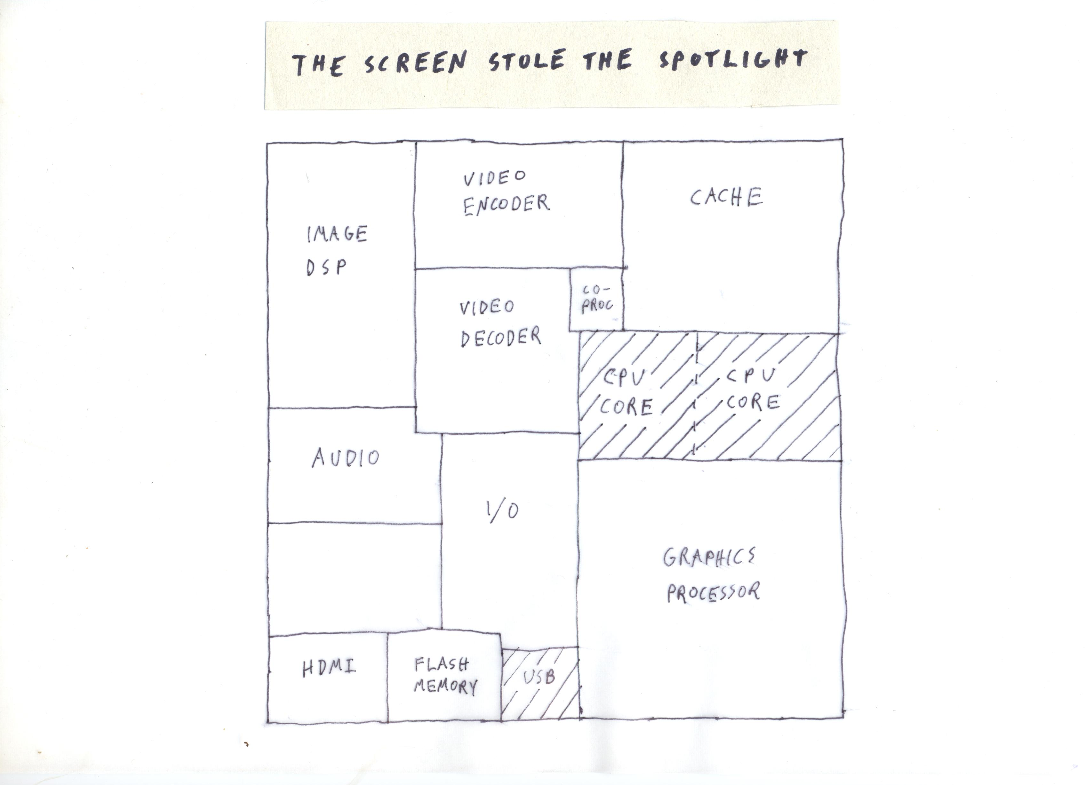 THE SCREEN STOLE THE SPOTLIGHT
VIDEO
ENCODER
CACHE
IMAGE
DSP
CO-
PROC
VIDEO
DECODER
CPU
CORE
CPU
CORE
AUDIO
I/O
GRAPHICS
PROCESSOR
HDMI
FLASH
MEMORY
USB